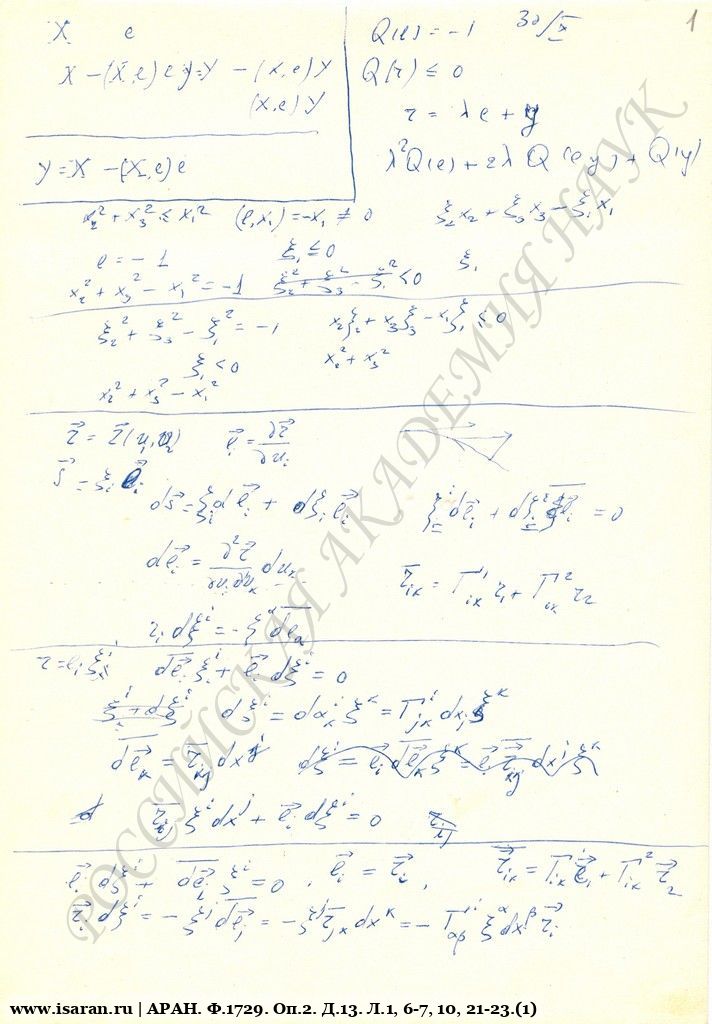 1
X e
X − (X,e) e y = y − (x,e) y
(x,e) y
y = X − (X,e) e
Q(e) = −1
Q(r) ≤ 0
r = λe + y
λ²Q(e) + 2λ Q(e y) + Q(y)
x₂² + x₃² ≤ x₁² (e,x₁) = −x₁ ≠ 0 ξ₂x₂ + ξ₃x₃ − ξ₁x₁
e = −1 ξ₁ ≤ 0 ξ₁
x₂² + x₃² − x₁² = −1 ξ₂² + ξ₃² − ξ₁² < 0
ξ₂² + ξ₃² − ξ₁² = −1 x₂ξ₂ + x₃ξ₃ − x₁ξ₁ ≤ 0
ξ₁ < 0 x₂² + x₃²
x₂² + x₃² − x₁²
r⃗ = r⃗(u₁,u₂) e⃗ᵢ = ∂r⃗/∂uᵢ
s⃗ = ξᵢ e⃗ᵢ
ds⃗ = ξᵢ de⃗ᵢ + dξᵢ e⃗ᵢ ξⁱ de⃗ᵢ + dξⁱ e⃗ᵢ = 0
de⃗ᵢ = ∂²r⃗/∂uᵢ∂uₖ duₖ r̅ᵢₖ = Γ¹ᵢₖ r₁ + Γ²ᵢₖ r₂
rᵢ dξⁱ = −ξᵅ de̅ₐ
r = eᵢξⁱ de⃗ᵢ ξⁱ + e⃗ᵢ dξⁱ = 0
ξⁱ + dξⁱ dξⁱ = dαₖⁱ ξᵏ = Γⁱⱼₖ dxⱼ ξᵏ
de⃗ₖ = r⃗ₖⱼ dxʲ dξⁱ = e⃗ᵢ de⃗ₖ ξᵏ = e⃗ᵢ r⃗ₖⱼ dxʲ ξᵏ
d r⃗ᵢⱼ ξⁱ dxʲ + e⃗ᵢ dξⁱ = 0
e⃗ᵢ dξⁱ + de⃗ᵢ ξⁱ = 0, e⃗ᵢ = r⃗ᵢ, r⃗ᵢₖ = Γ¹ᵢₖ r⃗₁ + Γ²ᵢₖ r⃗₂
r⃗ᵢ dξⁱ = −ξʲ de⃗ⱼ = −ξʲ r⃗ⱼₖ dxᵏ = −Γⁱ_αβ ξ^α dx^β r⃗ᵢ
РОССИЙСКАЯ АКАДЕМИЯ НАУК
www.isaran.ru | АРАН. Ф.1729. Оп.2. Д.13. Л.1, 6-7, 10, 21-23.(1)